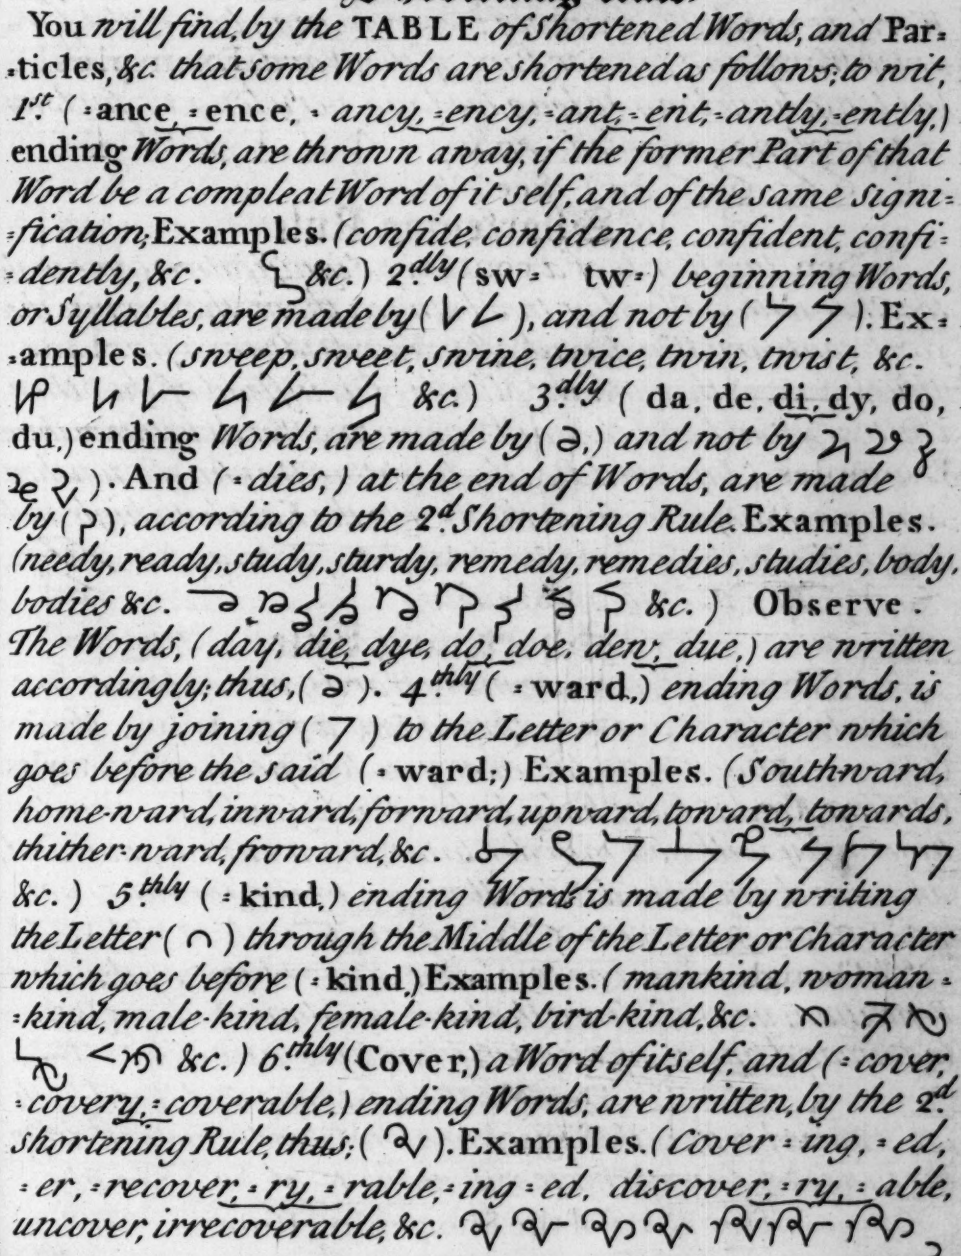 You will find, by the TABLE of Shortened Words, and Par=
=ticles, &c. that some Words are shortened as follows; to wit,
1st. (=ance, =ence, =ancy, =ency, =ant, =ent, =antly, =ently,)
ending Words, are thrown away, if the former Part of that
Word be a compleat Word of it self, and of the same signi=
=fication; Examples. (confide, confidence, confident, confi=
=dently, &c. &c.) 2.dly (sw= tw=) beginning Words,
or Syllables, are made by ( ), and not by ( ). Ex=
=amples. (sweep, sweet, swine, twice, twin, twist, &c.
&c.) 3.dly ( da, de, di, dy, do,
du,) ending Words, are made by ( ,) and not by
). And (=dies,) at the end of Words, are made
by ( ), according to the 2d. Shortening Rule. Examples.
(needy, ready, study, sturdy, remedy, remedies, studies, body,
bodies &c. &c.) Observe.
The Words, (day, die, dye, do, doe, dew, due,) are written
accordingly; thus, ( ). 4.thly (=ward,) ending Words, is
made by joining ( ) to the Letter or Character which
goes before the said (=ward;) Examples. (Southward,
home-ward, inward, forward, upward, toward, towards,
thither-ward, froward, &c.
&c.) 5.thly (=kind,) ending Words is made by writing
the Letter ( ) through the Middle of the Letter or Character
which goes before (=kind,) Examples. (mankind, woman=
=kind, male-kind, female-kind, bird-kind, &c.
&c.) 6.thly (Cover,) a Word of it self, and (=cover,
=covery, =coverable,) ending Words, are written, by the 2d.
shortening Rule, thus; ( ). Examples. (Cover=ing, =ed,
=er, =recover, =ry, =rable, =ing =ed, discover, =ry, =able,
uncover, irrecoverable, &c.